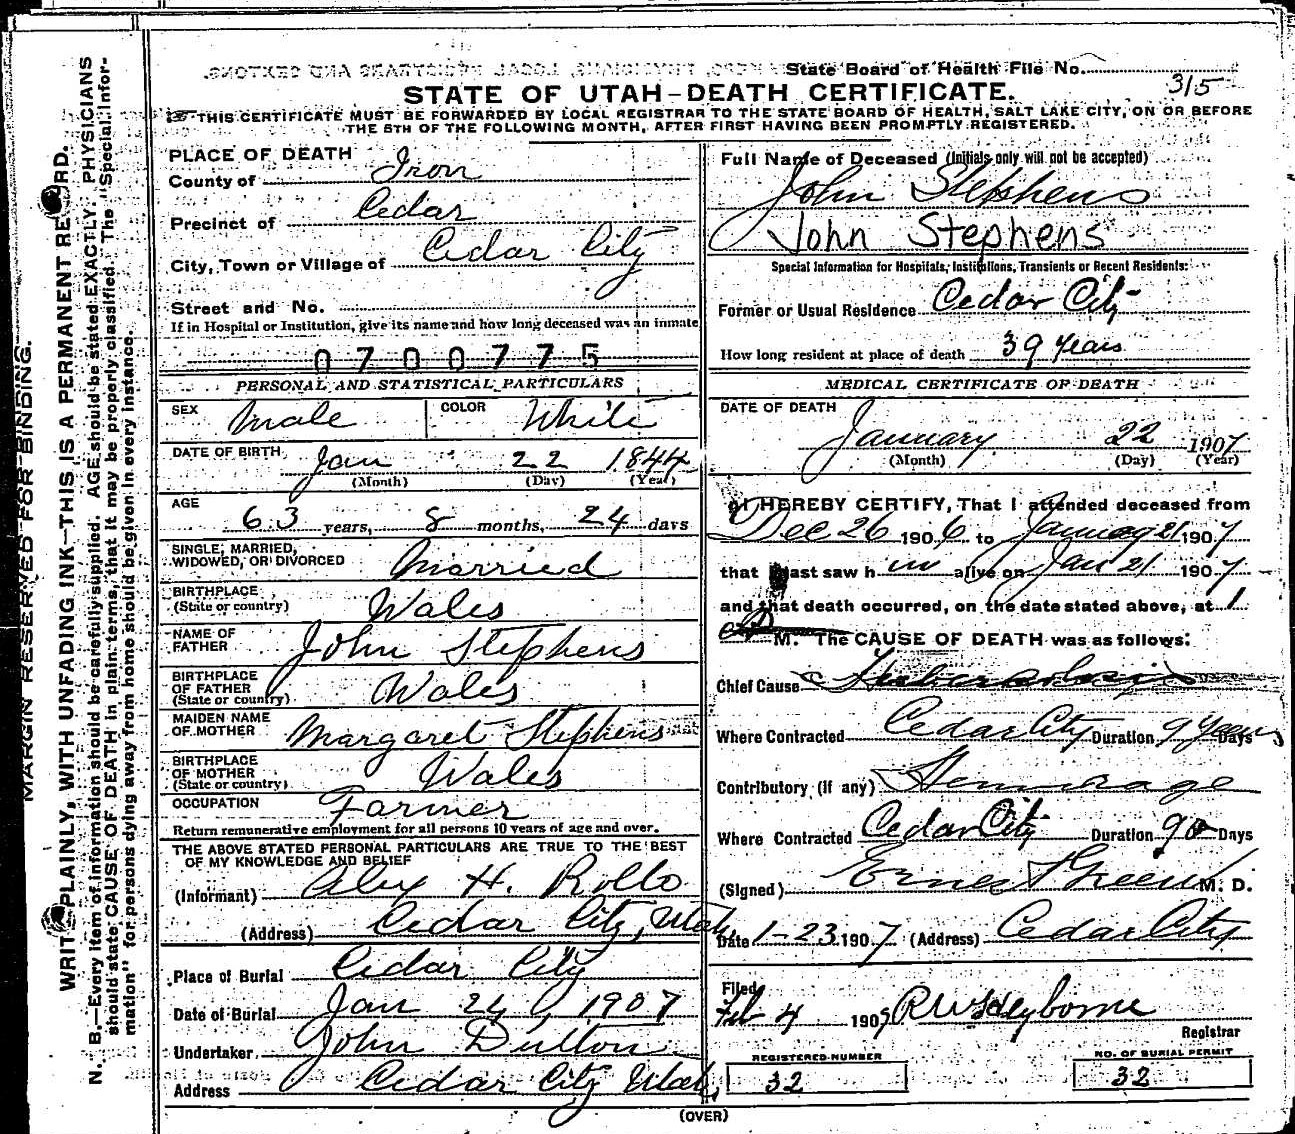 State Board of Health File No.
315
STATE OF UTAH-DEATH CERTIFICATE.
THIS CERTIFICATE MUST BE FORWARDED BY LOCAL REGISTRAR TO THE STATE BOARD OF HEALTH, SALT LAKE CITY, ON OR BEFORE
THE 5TH OF THE FOLLOWING MONTH, AFTER FIRST HAVING BEEN PROMPTLY REGISTERED.
MARGIN RESERVED FOR BINDING.
PLAINLY, WITH UNFADING INK—THIS IS A PERMANENT
N. B.—Every item of information should be carefully supplied. AGE should be stated EXACTLY. PHYSICIANS
should state CAUSE OF DEATH in plain terms, that it may be properly classified. The "Special Infor-
mation" for persons dying away from home should be given in every instance.
PLACE OF DEATH
County of Iron
Precinct of Cedar
City, Town or Village of Cedar City
Street and No.
If in Hospital or Institution, give its name and how long deceased was an inmate
0700775
PERSONAL AND STATISTICAL PARTICULARS
SEX Male COLOR White
DATE OF BIRTH Jan 22 1844
(Month) (Day) (Year)
AGE 63 years, 8 months, 24 days
SINGLE, MARRIED,
WIDOWED, OR DIVORCED Married
BIRTHPLACE
(State or country) Wales
NAME OF
FATHER John Stephens
BIRTHPLACE
OF FATHER
(State or country) Wales
MAIDEN NAME
OF MOTHER Margaret Stephens
BIRTHPLACE
OF MOTHER
(State or country) Wales
OCCUPATION Farmer
Return remunerative employment for all persons 10 years of age and over.
THE ABOVE STATED PERSONAL PARTICULARS ARE TRUE TO THE BEST
OF MY KNOWLEDGE AND BELIEF
(Informant) Alex H. Rollo
(Address) Cedar City, Utah,
Place of Burial Cedar City
Date of Burial Jan 24, 1907
Undertaker John Dutton
Address Cedar City Utah,
Full Name of Deceased (Initials only will not be accepted)
John Stephens
John Stephens
Special Information for Hospitals, Institutions, Transients or Recent Residents:
Former or Usual Residence Cedar City
How long resident at place of death 39 years
MEDICAL CERTIFICATE OF DEATH
DATE OF DEATH
January 22 1907
(Month) (Day) (Year)
I HEREBY CERTIFY, That I attended deceased from
Dec 26 1906 to January 21 1907
that I last saw him alive on Jan 21 1907
and that death occurred, on the date stated above, at 1
M. The CAUSE OF DEATH was as follows:
Chief Cause Tuberculosis
Where Contracted Cedar City Duration 9 Years Days
Contributory (if any) Hemorrage
Where Contracted Cedar City Duration 90 Days
(Signed) M. D.
Date 1-23 1907 (Address) Cedar City
Filed
Feb 4 190
Registrar
REGISTERED NUMBER
32
NO. OF BURIAL PERMIT
32
(OVER)